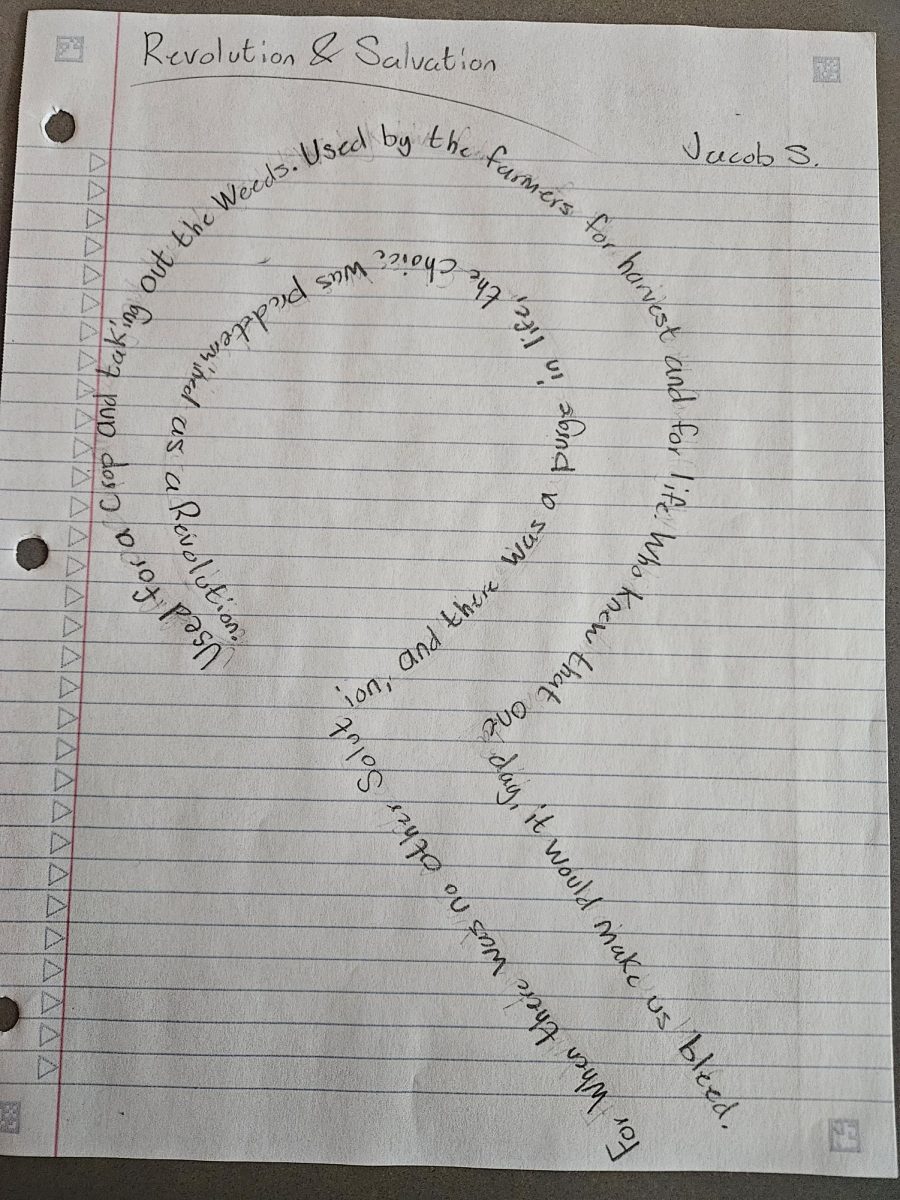 Revolution & Salvation
Jacob S.
Used for a Crop and taking out the Weeds. Used by the farmers for harvest and for life. Who knew that one day, it would make us bleed.
For When there was no other Solution, and there was a in life, the Choice was predetemined as a Revolution.